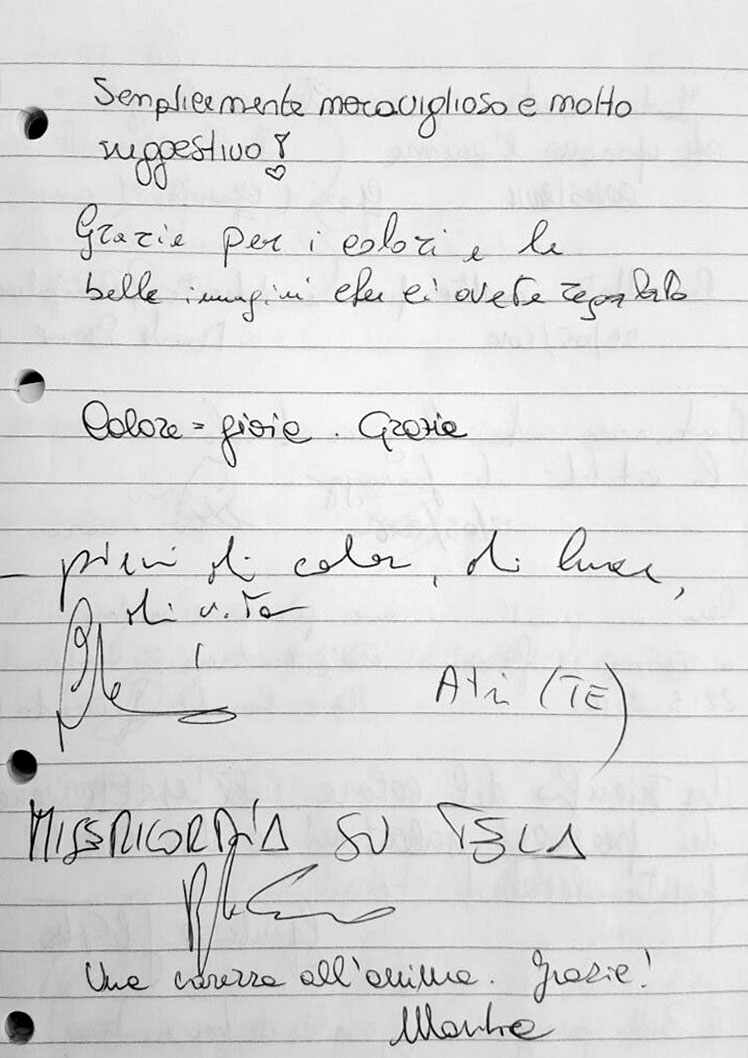 Semplicemente meraviglioso e molto
suggestivo!
Grazie per i colori e le
belle immagini che ci avete regalato
Colore = gioia. Grazie
pieni di color, di luce,
di vita
Atri (TE)
MISERICORDIA SU TELA
Una carezza all'anima. Grazie!